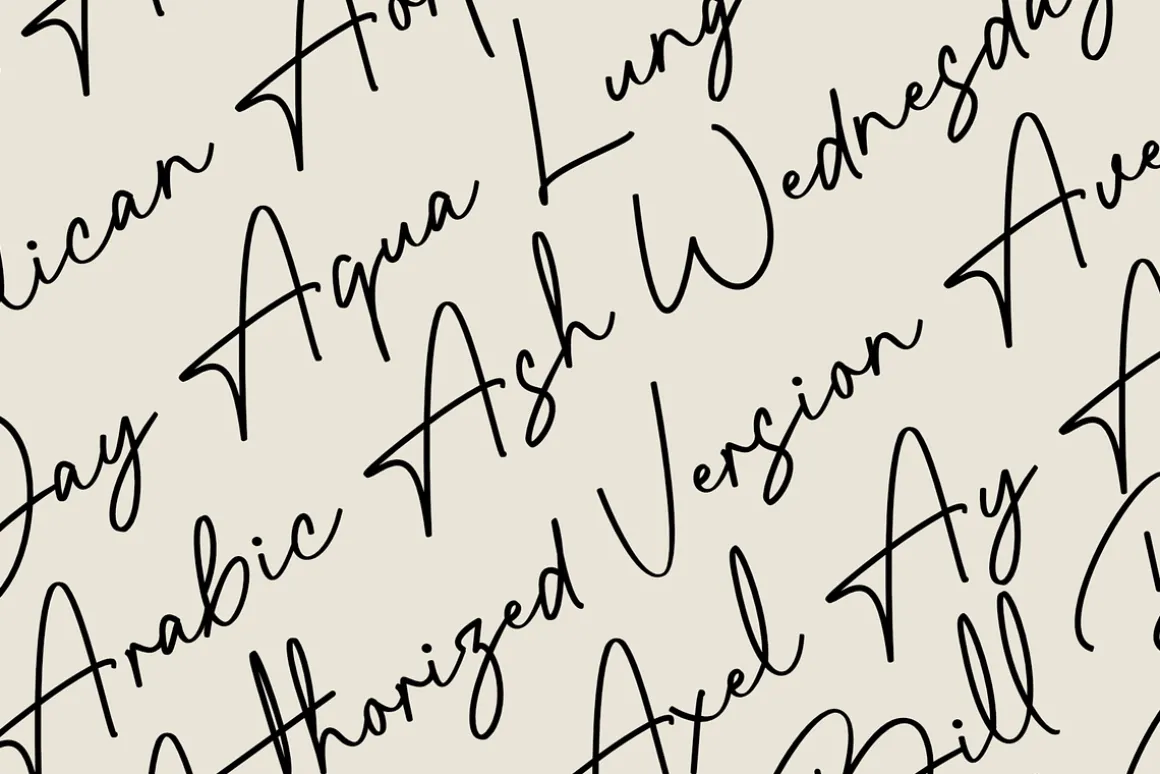 lican
Day Aqua Lung
Arabic Ash Wednesday
Authorized Version Ave
Axel Ay
Bill